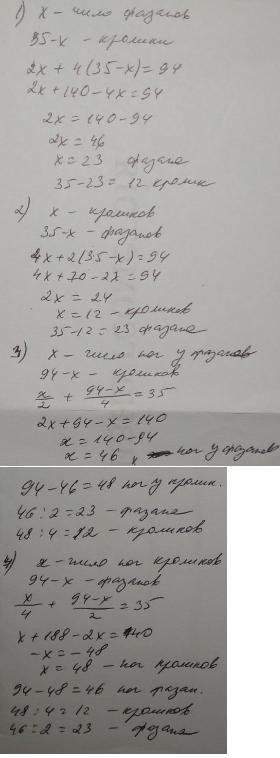 1) x – число фазанов
35-x – кролики
2x + 4(35-x) = 94
2x + 140 - 4x = 94
2x = 140 - 94
2x = 46
x = 23 фазана
35-23 = 12 кролик
2) x – кроликов
35-x – фазанов
4x + 2(35-x) = 94
4x + 70 - 2x = 94
2x = 24
x = 12 - кроликов
35-12 = 23 фазана
3) x – число ног у фазанов
94-x – кроликов
x/2 + (94-x)/4 = 35
2x + 94 - x = 140
x = 140 - 94
x = 46 ног у фазанов
94 - 46 = 48 ног у кролик.
46 : 2 = 23 - фазана
48 : 4 = 12 - кроликов
4) x - число ног кроликов
94-x - фазанов
x/4 + (94-x)/2 = 35
x + 188 - 2x = 140
-x = -48
x = 48 - ног кроликов
94 - 48 = 46 ног фазан.
48 : 4 = 12 - кроликов
46 : 2 = 23 - фазана